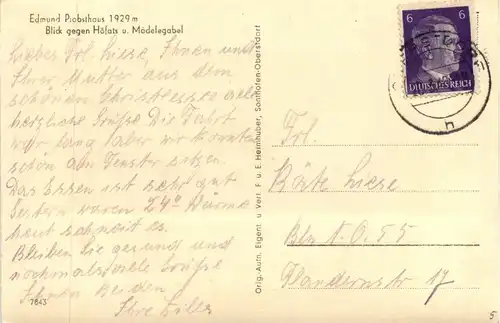 Edmund Probsthaus 1929 m
Blick gegen Höfats u. Mädelegabel
Liebes Frl. Liese, Ihnen und
Ihrer Mutter aus dem
schönen alle
herzliche Grüße Die Fahrt
war lang aber wir konnten
schön am Fenster sitzen.
Das Essen ist sehr gut
Gestern waren 24° Wärme
heut schneit es.
Bleiben Sie gesund und
nochmals viele Grüße
Ihnen beiden
Ihre
7843
Orig.-Aufn. Eigent. u. Verl. F. u. E. Heimhuber, Sonthofen-Oberstdorf
6 6
DEUTSCHES REICH
h
Frl.
Käte Liese
Bln N.O. 55
17
5